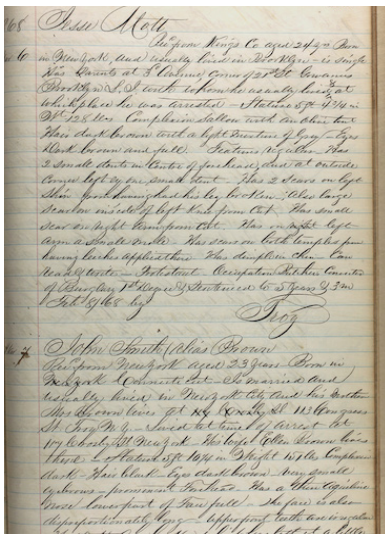 1868 Jesse Mott
Rec. from Kings Co aged 24 yrs Born
in New York, and usually lived in Brooklyn - is single
Has Parents at 3rd Avenue Corner of 21st St. Gowanus
Brooklyn L.I. with whom he usually lived, at
which place he was arrested - Stature 5ft 4 3/4 in
Wt 128 lbs Complexion Sallow with an Olive tint
Hair dark brown with a slight mixture of Grey - Eyes
Dark brown and full Features regular Has
2 small dents in Centre of forehead, and at outside
Corner left eye one small dent - Has 2 Scars on left
Shin from having had his leg broken, Also large
Scar on inside of left Knee from Cut Has small
scar on right from Cut Has on left
arm a small mole Has scars on both temples from
having leeches applied there Has dimple in Chin Can
read & write - Protestant - Occupation Butcher Convicted
of Burglary 1st Degree & Sentenced to 5 Years & 3 m
Feb 8/68 by
7 John Smith (alias Brown
Rec from New York aged 23 years Born in
Connecticut - Is married and
usually lived in New York City and his Mother
Mrs Brown lives at 113 Congress
St. Troy N.Y. - Lived at time of arrest at
107 Crosby St New York - His wife Ellen Brown lives
there - Stature 5ft in Weight 151 lbs Complexion
dark - Hair black - Eyes dark brown very small
eyebrows - prominent Forehead Has a thin aquiline
nose lower part of Face full - The face is also
disproportionately long - upper front teeth are irregular